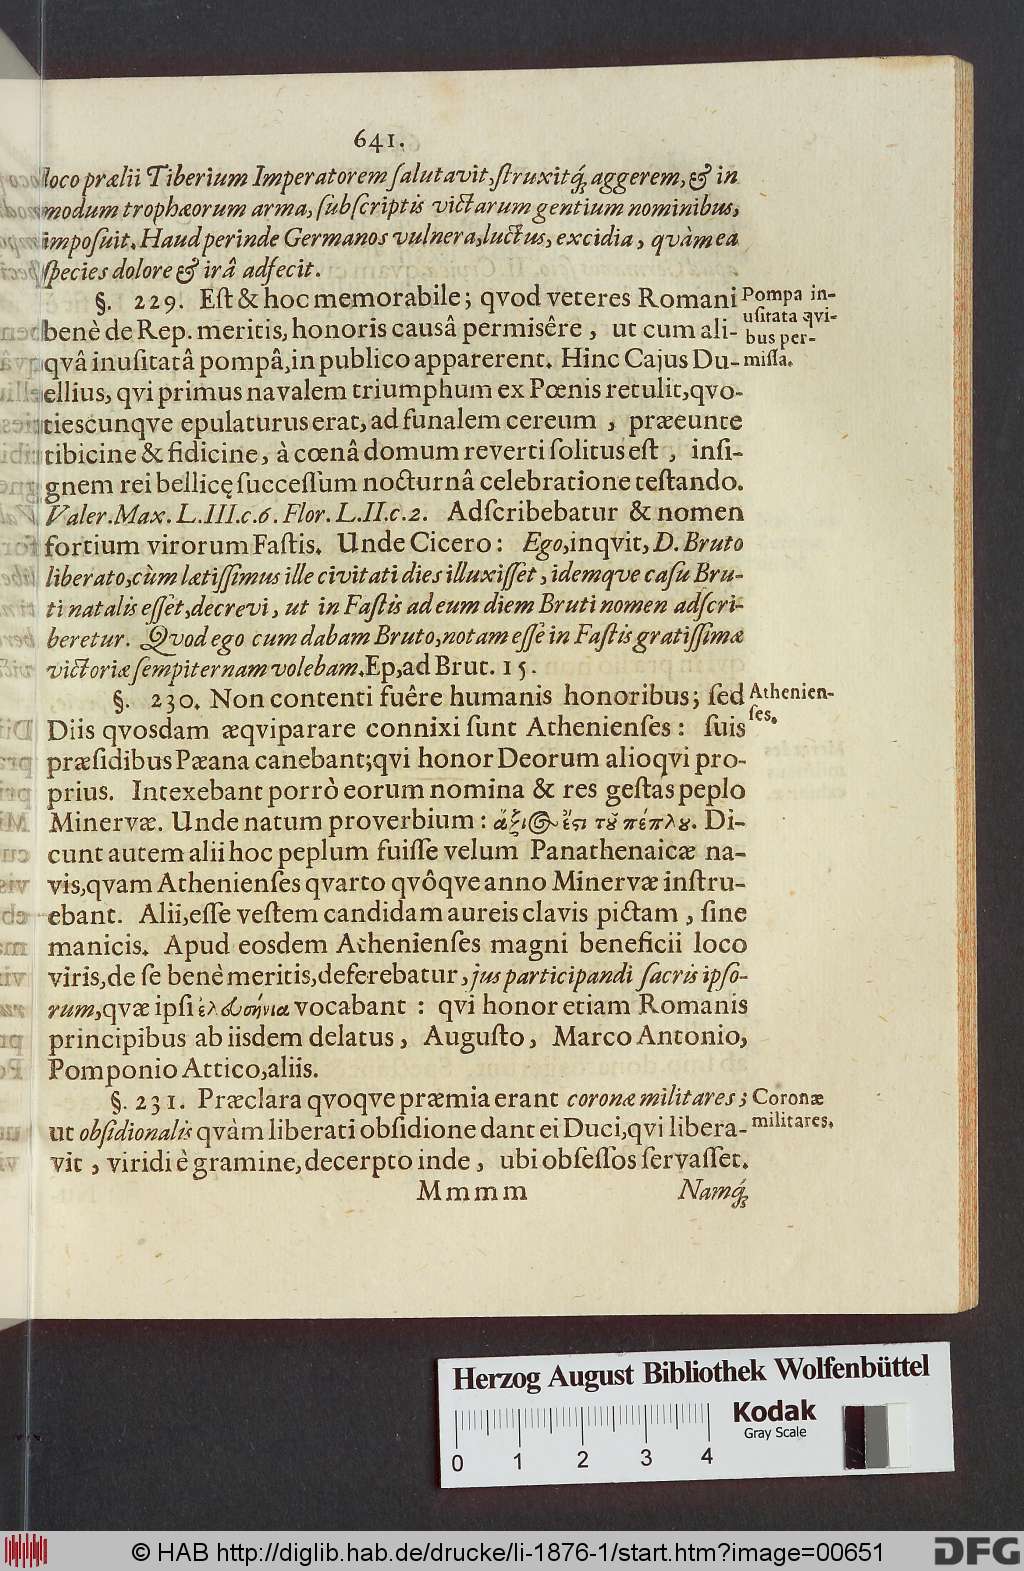 641.
loco prælii Tiberium Imperatorem ſalutavit, ſtruxitq́; aggerem, & in
modum trophæorum arma, ſubſcriptis victarum gentium nominibus,
impoſuit. Haud perinde Germanos vulnera, luctus, excidia, qvàm ea
ſpecies dolore & irâ adfecit.
§. 229. Eſt & hoc memorabile; qvod veteres Romani
benè de Rep. meritis, honoris causâ permisêre, ut cum ali-
qvâ inuſitatâ pompâ, in publico apparerent. Hinc Cajus Du-
ellius, qvi primus navalem triumphum ex Pœnis retulit, qvo-
tiescunqve epulaturus erat, ad funalem cereum, præeunte
tibicine & fidicine, à cœnâ domum reverti ſolitus eſt, inſi-
gnem rei bellicę ſucceſſum nocturnâ celebratione teſtando.
Valer. Max. L. III. c. 6. Flor. L. II. c. 2. Adſcribebatur & nomen
fortium virorum Faſtis. Unde Cicero: Ego, inqvit, D. Bruto
liberato, cùm lætiſſimus ille civitati dies illuxiſſet, idemqve caſu Bru-
ti natalis eſſet, decrevi, ut in Faſtis ad eum diem Bruti nomen adſcri-
beretur. Qvod ego cum dabam Bruto, notam eſſe in Faſtis gratiſſimæ
victoriæ ſempiternam volebam. Ep, ad Brut. 15.
Pompa in-
uſitata qvi-
bus per-
miſſa.
§. 230. Non contenti fuêre humanis honoribus; ſed
Diis qvosdam æqviparare connixi ſunt Athenienſes: ſuis
præſidibus Pæana canebant; qvi honor Deorum alioqvi pro-
prius. Intexebant porrò eorum nomina & res geſtas peplo
Minervæ. Unde natum proverbium: ἄξι῀Ꙩ ἔϛι τȣ͂ πέπλȣ. Di-
cunt autem alii hoc peplum fuiſſe velum Panathenaicæ na-
vis, qvam Athenienſes qvarto qvôqve anno Minervæ inſtru-
ebant. Alii, eſſe veſtem candidam aureis clavis pictam, ſine
manicis. Apud eosdem Athenienſes magni beneficii loco
viris, de ſe benè meritis, deferebatur, jus participandi ſacris ipſo-
rum, qvæ ipſi vocabant: qvi honor etiam Romanis
principibus ab iisdem delatus, Auguſto, Marco Antonio,
Pomponio Attico, aliis.
Athenien-
ſes.
§. 231. Præclara qvoqve præmia erant coronæ militares;
ut obſidionalis qvàm liberati obſidione dant ei Duci, qvi libera-
vit, viridi è gramine, decerpto inde, ubi obſeſſos ſervaſſet.
Coronæ
militares.
Mmmm Namq́;
Herzog August Bibliothek Wolfenbüttel
Kodak
Gray Scale
0 1 2 3 4
© HAB http://diglib.hab.de/drucke/li-1876-1/start.htm?image=00651
DFG